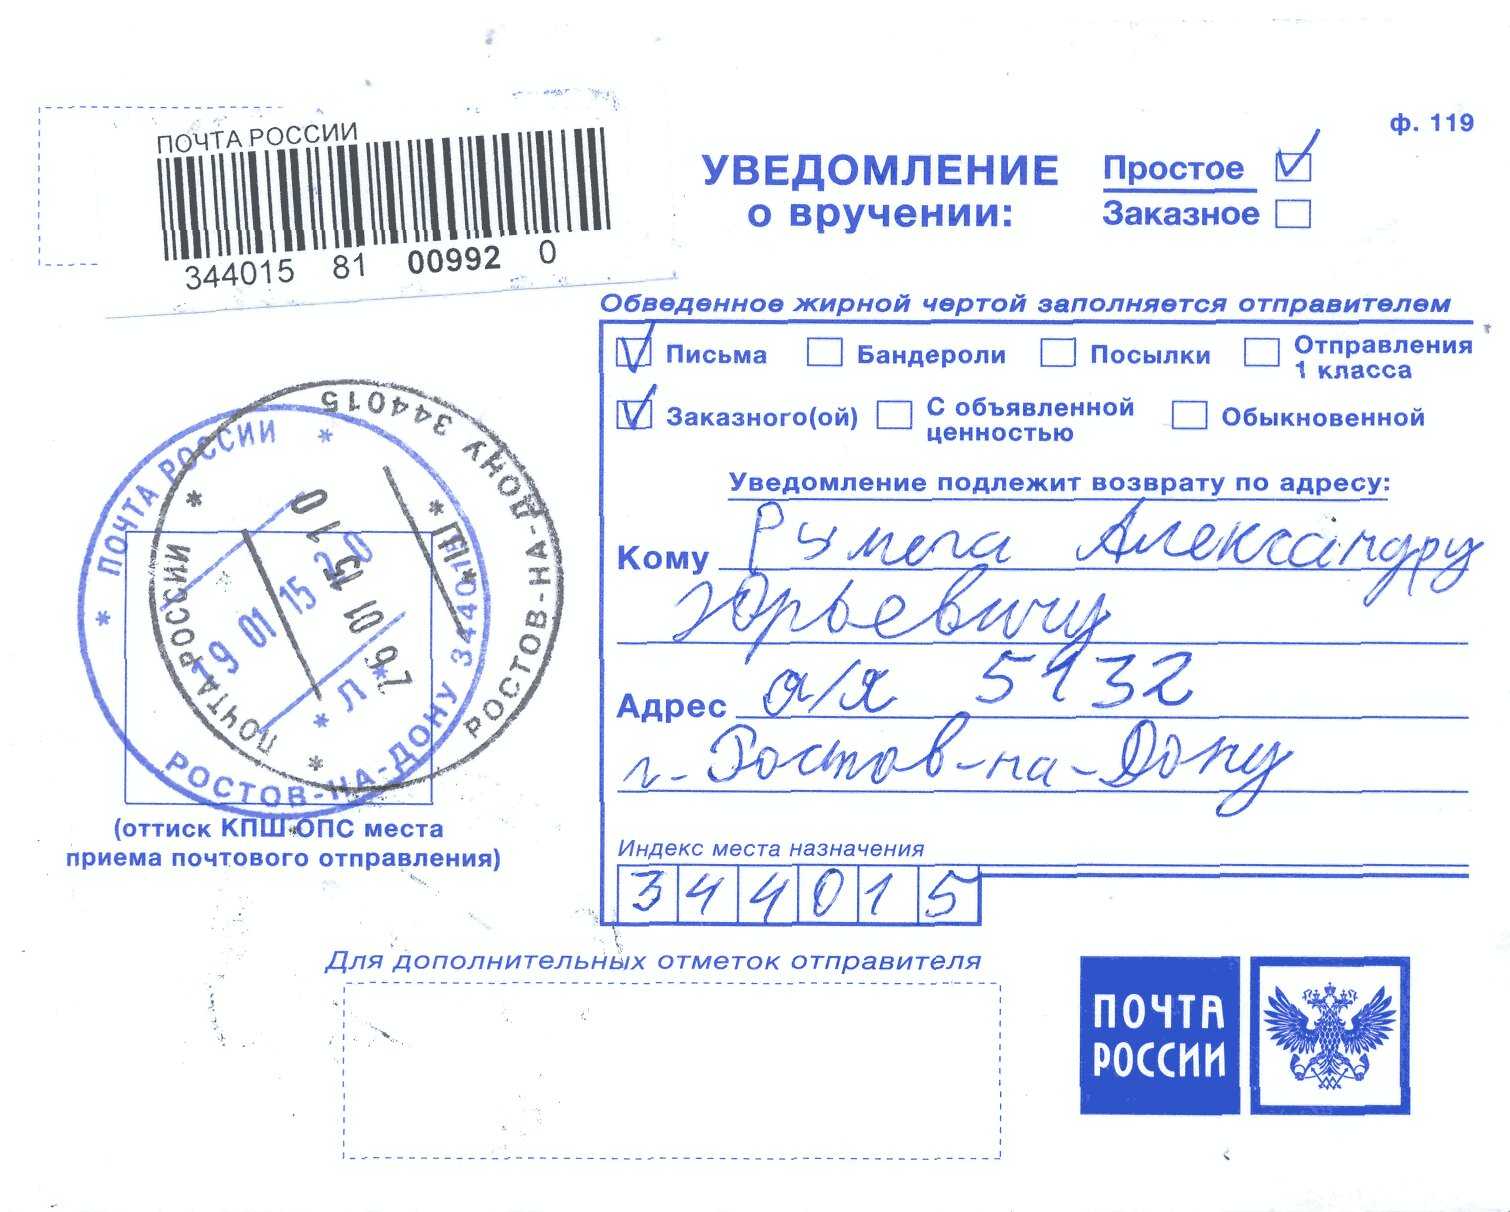 ф. 119
ПОЧТА РОССИИ
344015 81 00992 0
УВЕДОМЛЕНИЕ
о вручении:
Простое
Заказное
Обведенное жирной чертой заполняется отправителем
Письма Бандероли Посылки Отправления 1 класса
Заказного(ой) С объявленной ценностью Обыкновенной
Уведомление подлежит возврату по адресу:
Кому Александру
Юрьевичу
Адрес а/я 5132
г. Ростов-на-Дону
Индекс места назначения
344015
* ПОЧТА РОССИИ *
РОСТОВ-НА-ДОНУ 344015
19 01 15 20
* Л *
* ПОЧТА РОССИИ *
РОСТОВ-НА-ДОНУ 344015
26 01 15 10
(оттиск КПШ ОПС места
приема почтового отправления)
Для дополнительных отметок отправителя
ПОЧТА
РОССИИ